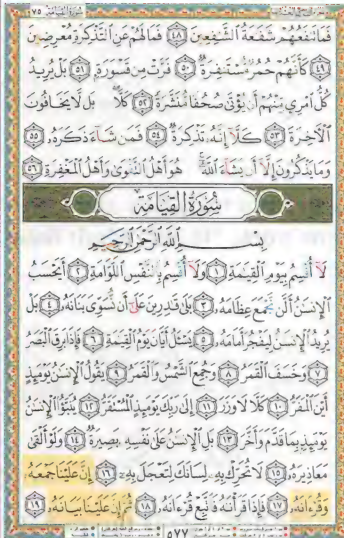 سُورَةُ القِيَامَة ٧٥
فَمَا تَنفَعُهُمْ شَفَٰعَةُ ٱلشَّٰفِعِينَ ٤٨ فَمَا لَهُمْ عَنِ ٱلتَّذْكِرَةِ مُعْرِضِينَ
٤٩ كَأَنَّهُمْ حُمُرٌ مُّسْتَنفِرَةٌ ٥٠ فَرَّتْ مِن قَسْوَرَةٍۭ ٥١ بَلْ يُرِيدُ
كُلُّ ٱمْرِئٍ مِّنْهُمْ أَن يُؤْتَىٰ صُحُفًا مُّنَشَّرَةً ٥٢ كَلَّاۖ بَل لَّا يَخَافُونَ
ٱلْءَاخِرَةَ ٥٣ كَلَّآ إِنَّهُۥ تَذْكِرَةٌ ٥٤ فَمَن شَآءَ ذَكَرَهُۥ ٥٥
وَمَا يَذْكُرُونَ إِلَّآ أَن يَشَآءَ ٱللَّهُۚ هُوَ أَهْلُ ٱلتَّقْوَىٰ وَأَهْلُ ٱلْمَغْفِرَةِ ٥٦
سُورَةُ القِيَامَةِ
بِسْمِ ٱللَّهِ ٱلرَّحْمَٰنِ ٱلرَّحِيمِ
لَآ أُقْسِمُ بِيَوْمِ ٱلْقِيَٰمَةِ ١ وَلَآ أُقْسِمُ بِٱلنَّفْسِ ٱللَّوَّامَةِ ٢ أَيَحْسَبُ
ٱلْإِنسَٰنُ أَلَّن نَّجْمَعَ عِظَامَهُۥ ٣ بَلَىٰ قَٰدِرِينَ عَلَىٰٓ أَن نُّسَوِّىَ بَنَانَهُۥ ٤ بَلْ
يُرِيدُ ٱلْإِنسَٰنُ لِيَفْجُرَ أَمَامَهُۥ ٥ يَسْـَٔلُ أَيَّانَ يَوْمُ ٱلْقِيَٰمَةِ ٦ فَإِذَا بَرِقَ ٱلْبَصَرُ
٧ وَخَسَفَ ٱلْقَمَرُ ٨ وَجُمِعَ ٱلشَّمْسُ وَٱلْقَمَرُ ٩ يَقُولُ ٱلْإِنسَٰنُ يَوْمَئِذٍ
أَيْنَ ٱلْمَفَرُّ ١٠ كَلَّا لَا وَزَرَ ١١ إِلَىٰ رَبِّكَ يَوْمَئِذٍ ٱلْمُسْتَقَرُّ ١٢ يُنَبَّؤُا۟ ٱلْإِنسَٰنُ
يَوْمَئِذٍۭ بِمَا قَدَّمَ وَأَخَّرَ ١٣ بَلِ ٱلْإِنسَٰنُ عَلَىٰ نَفْسِهِۦ بَصِيرَةٌ ١٤ وَلَوْ أَلْقَىٰ
مَعَاذِيرَهُۥ ١٥ لَا تُحَرِّكْ بِهِۦ لِسَانَكَ لِتَعْجَلَ بِهِۦٓ ١٦ إِنَّ عَلَيْنَا جَمْعَهُۥ
وَقُرْءَانَهُۥ ١٧ فَإِذَا قَرَأْنَٰهُ فَٱتَّبِعْ قُرْءَانَهُۥ ١٨ ثُمَّ إِنَّ عَلَيْنَا بَيَانَهُۥ ١٩
٥٧٧